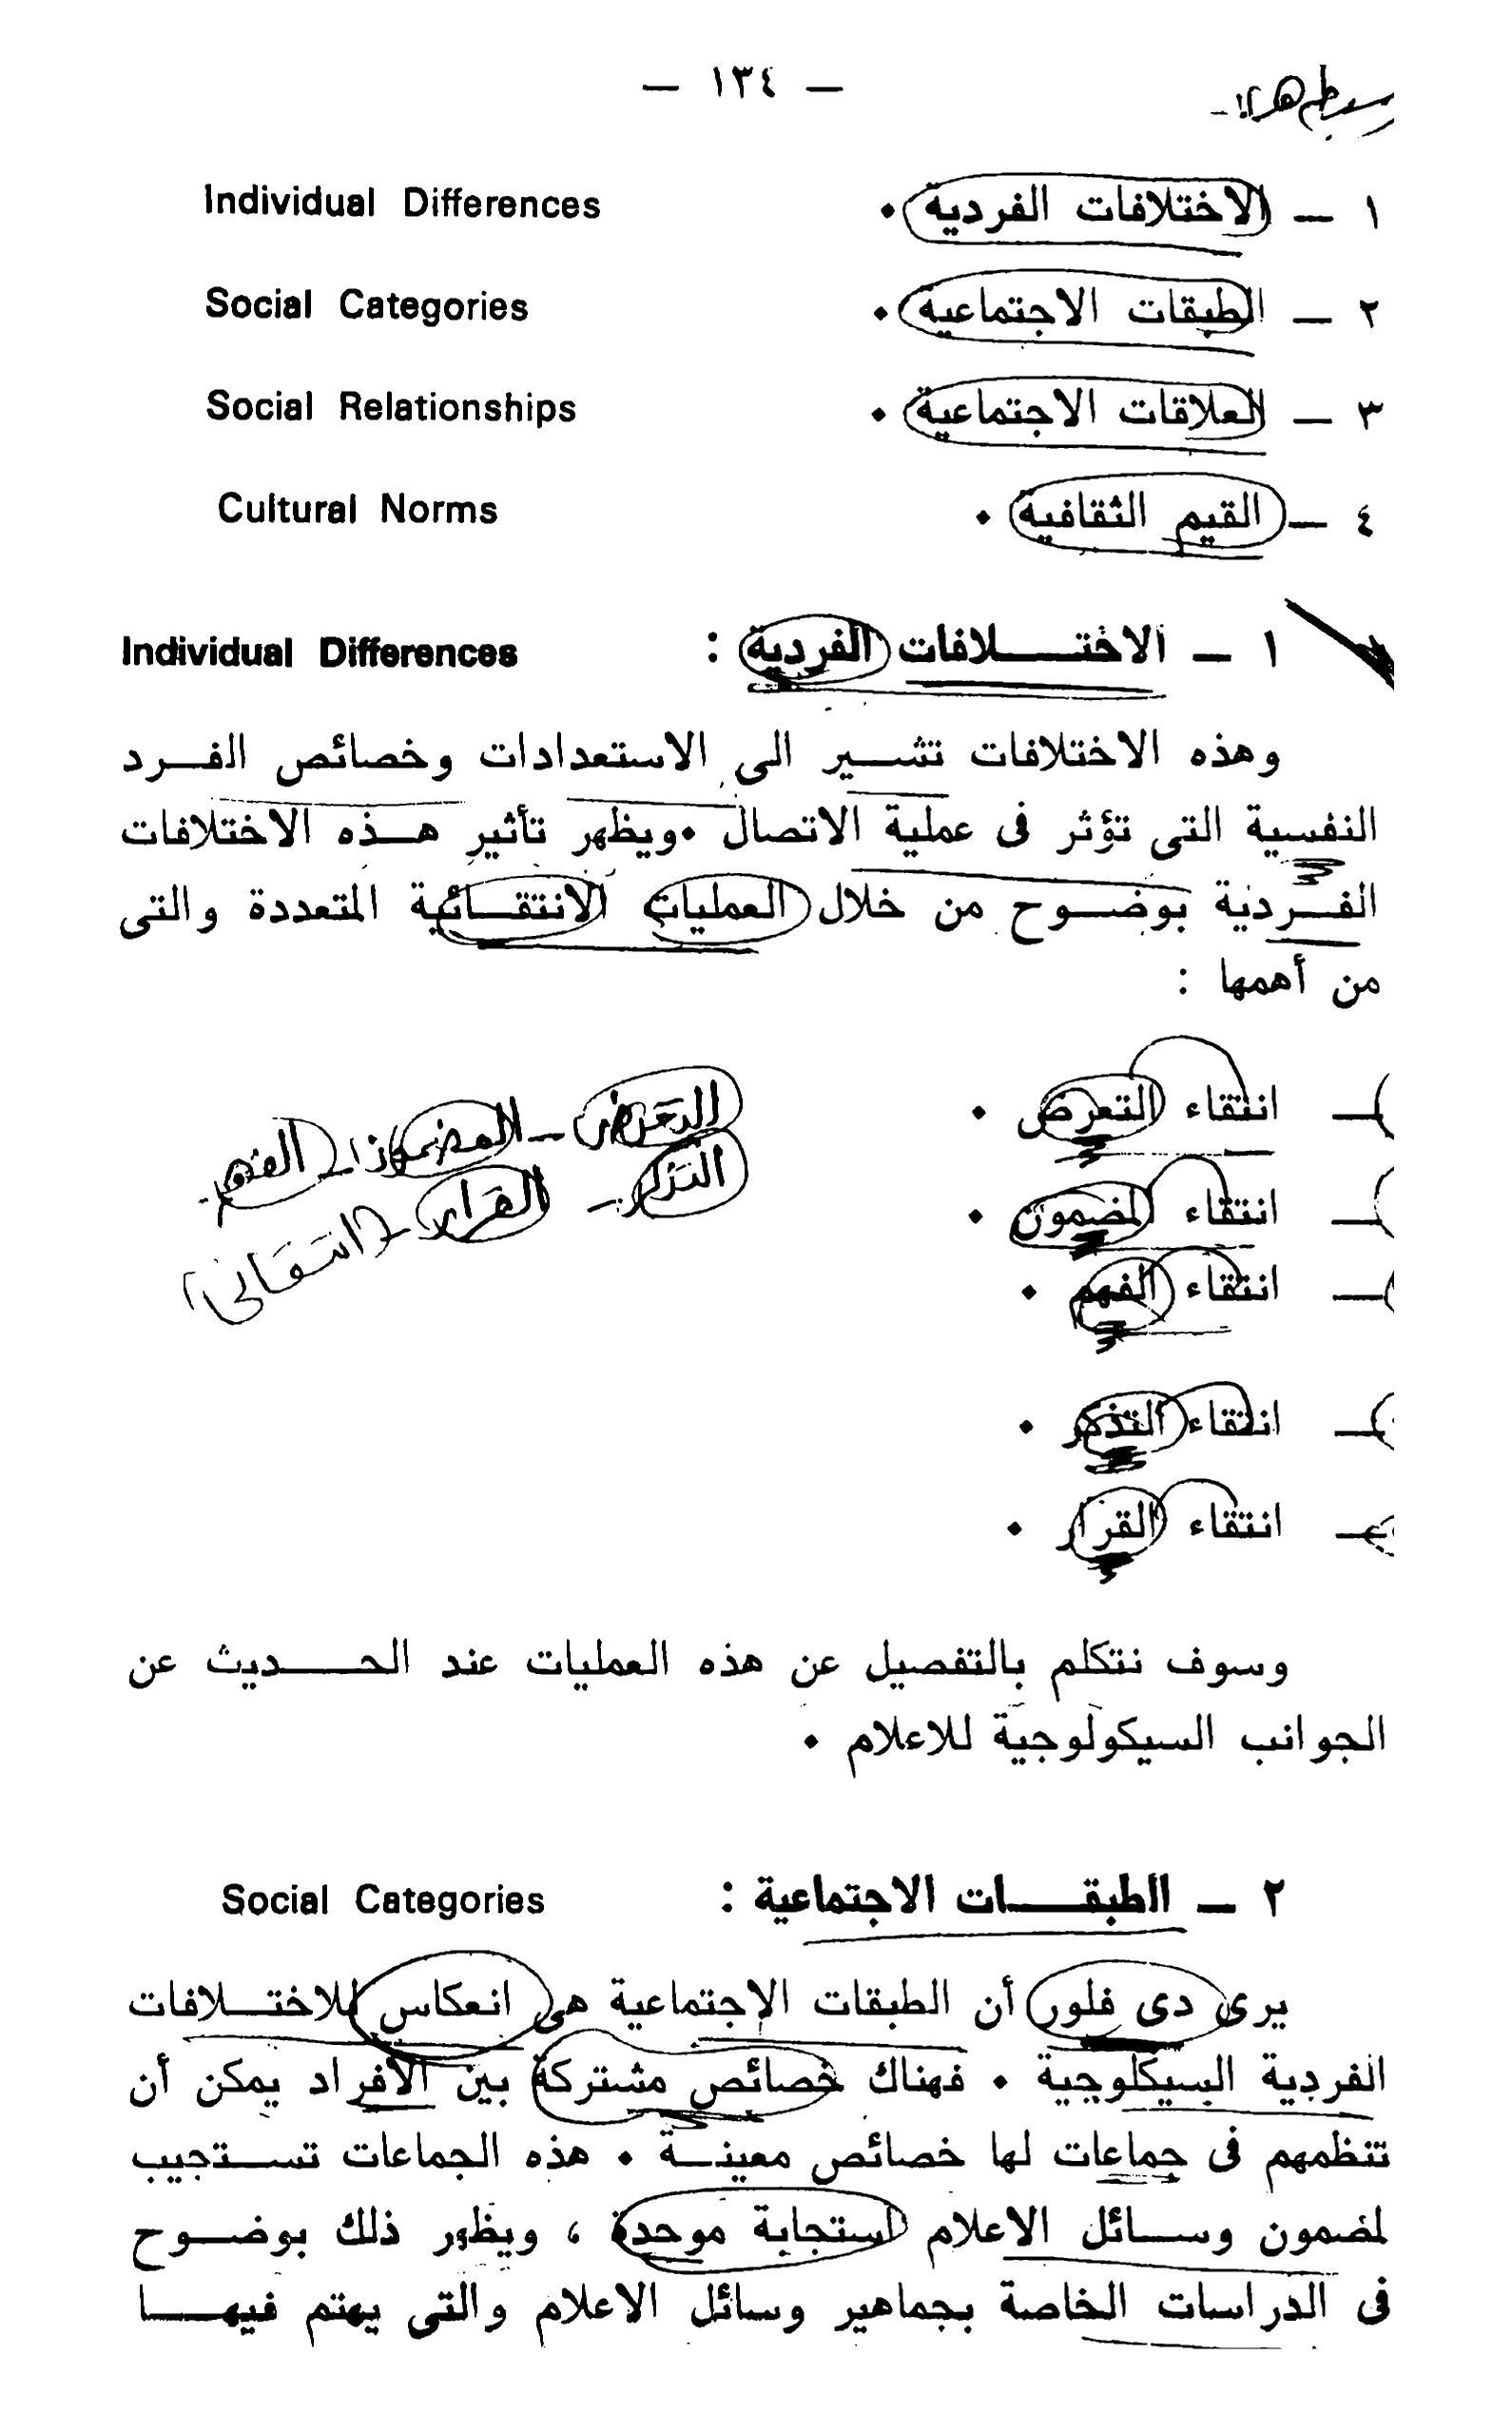 — ١٣٤ —
١ — الاختلافات الفردية . Individual Differences
٢ — الطبقات الاجتماعية . Social Categories
٣ — العلاقات الاجتماعية . Social Relationships
٤ — القيم الثقافية . Cultural Norms
١ — الاختـــلافات الفردية : Individual Differences
وهذه الاختلافات تشـــير الى الاستعدادات وخصائص الفـرد
النفسية التى تؤثر فى عملية الاتصال . ويظهر تأثير هـذه الاختلافات
الفـردية بوضـوح من خلال العمليات الانتقـائية المتعددة والتى
من أهمها :
— انتقاء التعرض .
— انتقاء المضمون .
— انتقاء الفهم .
— انتقاء التذكر .
— انتقاء القرار .
التعرض — المضمون — الفهم
التذكر — القرار — (انتقائى)
وسوف نتكلم بالتفصيل عن هذه العمليات عند الحـــديث عن
الجوانب السيكولوجية للاعلام .
٢ — الطبقـــات الاجتماعية : Social Categories
يرى دى فلور أن الطبقات الاجتماعية هى انعكاس للاختـلافات
الفردية السيكلوجية . فهناك خصائص مشتركة بين الأفراد يمكن أن
تنظمهم فى جماعات لها خصائص معينـة . هذه الجماعات تسـتجيب
لمضمون وسـائل الاعلام استجابة موحدة ، ويظهر ذلك بوضـوح
فى الدراسات الخاصة بجماهير وسائل الاعلام والتى يهتم فيهـا